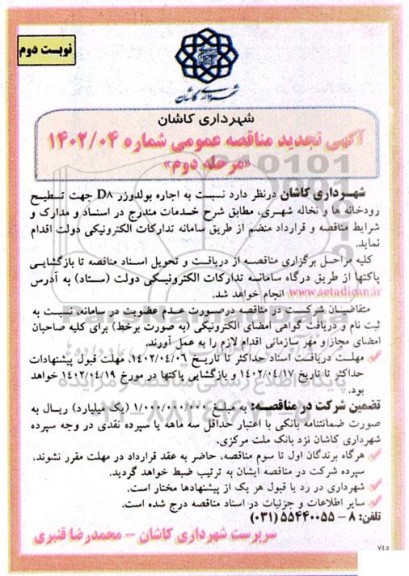 نوبت دوم
شهرداری کاشان
شهرداری کاشان
آگهی تجدید مناقصه عمومی شماره ۱۴۰۲/۰۴
«مرحله دوم»
شهرداری کاشان درنظر دارد نسبت به اجاره بولدوزر D۸ جهت تسطیح
رودخانه ها و نخاله شهری، مطابق شرح خدمات مندرج در اسناد و مدارک و
شرایط مناقصه و قرارداد منضم از طریق سامانه تدارکات الکترونیکی دولت اقدام
نماید.
کلیه مراحل برگزاری مناقصه از دریافت و تحویل اسناد مناقصه تا بازگشایی
پاکتها از طریق درگاه سامانه تدارکات الکترونیکی دولت (ستاد) به آدرس
www.setadiran.ir انجام خواهد شد.
متقاضیان شرکت در مناقصه درصورت عدم عضویت در سامانه، نسبت به
ثبت نام و دریافت گواهی امضای الکترونیکی (به صورت برخط) برای کلیه صاحبان
امضای مجاز و مهر سازمانی اقدام لازم را به عمل آورند.
مهلت دریافت اسناد حداکثر تا تاریخ ۱۴۰۲/۰۴/۰۶، مهلت قبول پیشنهادات
حداکثر تا تاریخ ۱۴۰۲/۰۴/۱۷ و بازگشایی پاکتها در مورخ ۱۴۰۲/۰۴/۱۹ خواهد
بود.
تضمین شرکت در مناقصه: به مبلغ ۱/۰۰۰/۰۰۰/۰۰۰ (یک میلیارد) ریال به
صورت ضمانتنامه بانکی با اعتبار حداقل سه ماهه یا سپرده نقدی در وجه سپرده
شهرداری کاشان نزد بانک ملت مرکزی.
هرگاه برندگان اول تا سوم مناقصه، حاضر به عقد قرارداد در مهلت مقرر نشوند،
سپرده شرکت در مناقصه ایشان به ترتیب ضبط خواهد گردید.
شهرداری در رد یا قبول هر یک از پیشنهادها مختار است.
سایر اطلاعات و جزئیات در اسناد مناقصه درج شده است.
تلفن: ۸ – ۵۵۴۴۰۰۵۵ (۰۳۱)
سرپرست شهرداری کاشان – محمدرضا قنبری
۷۴۵